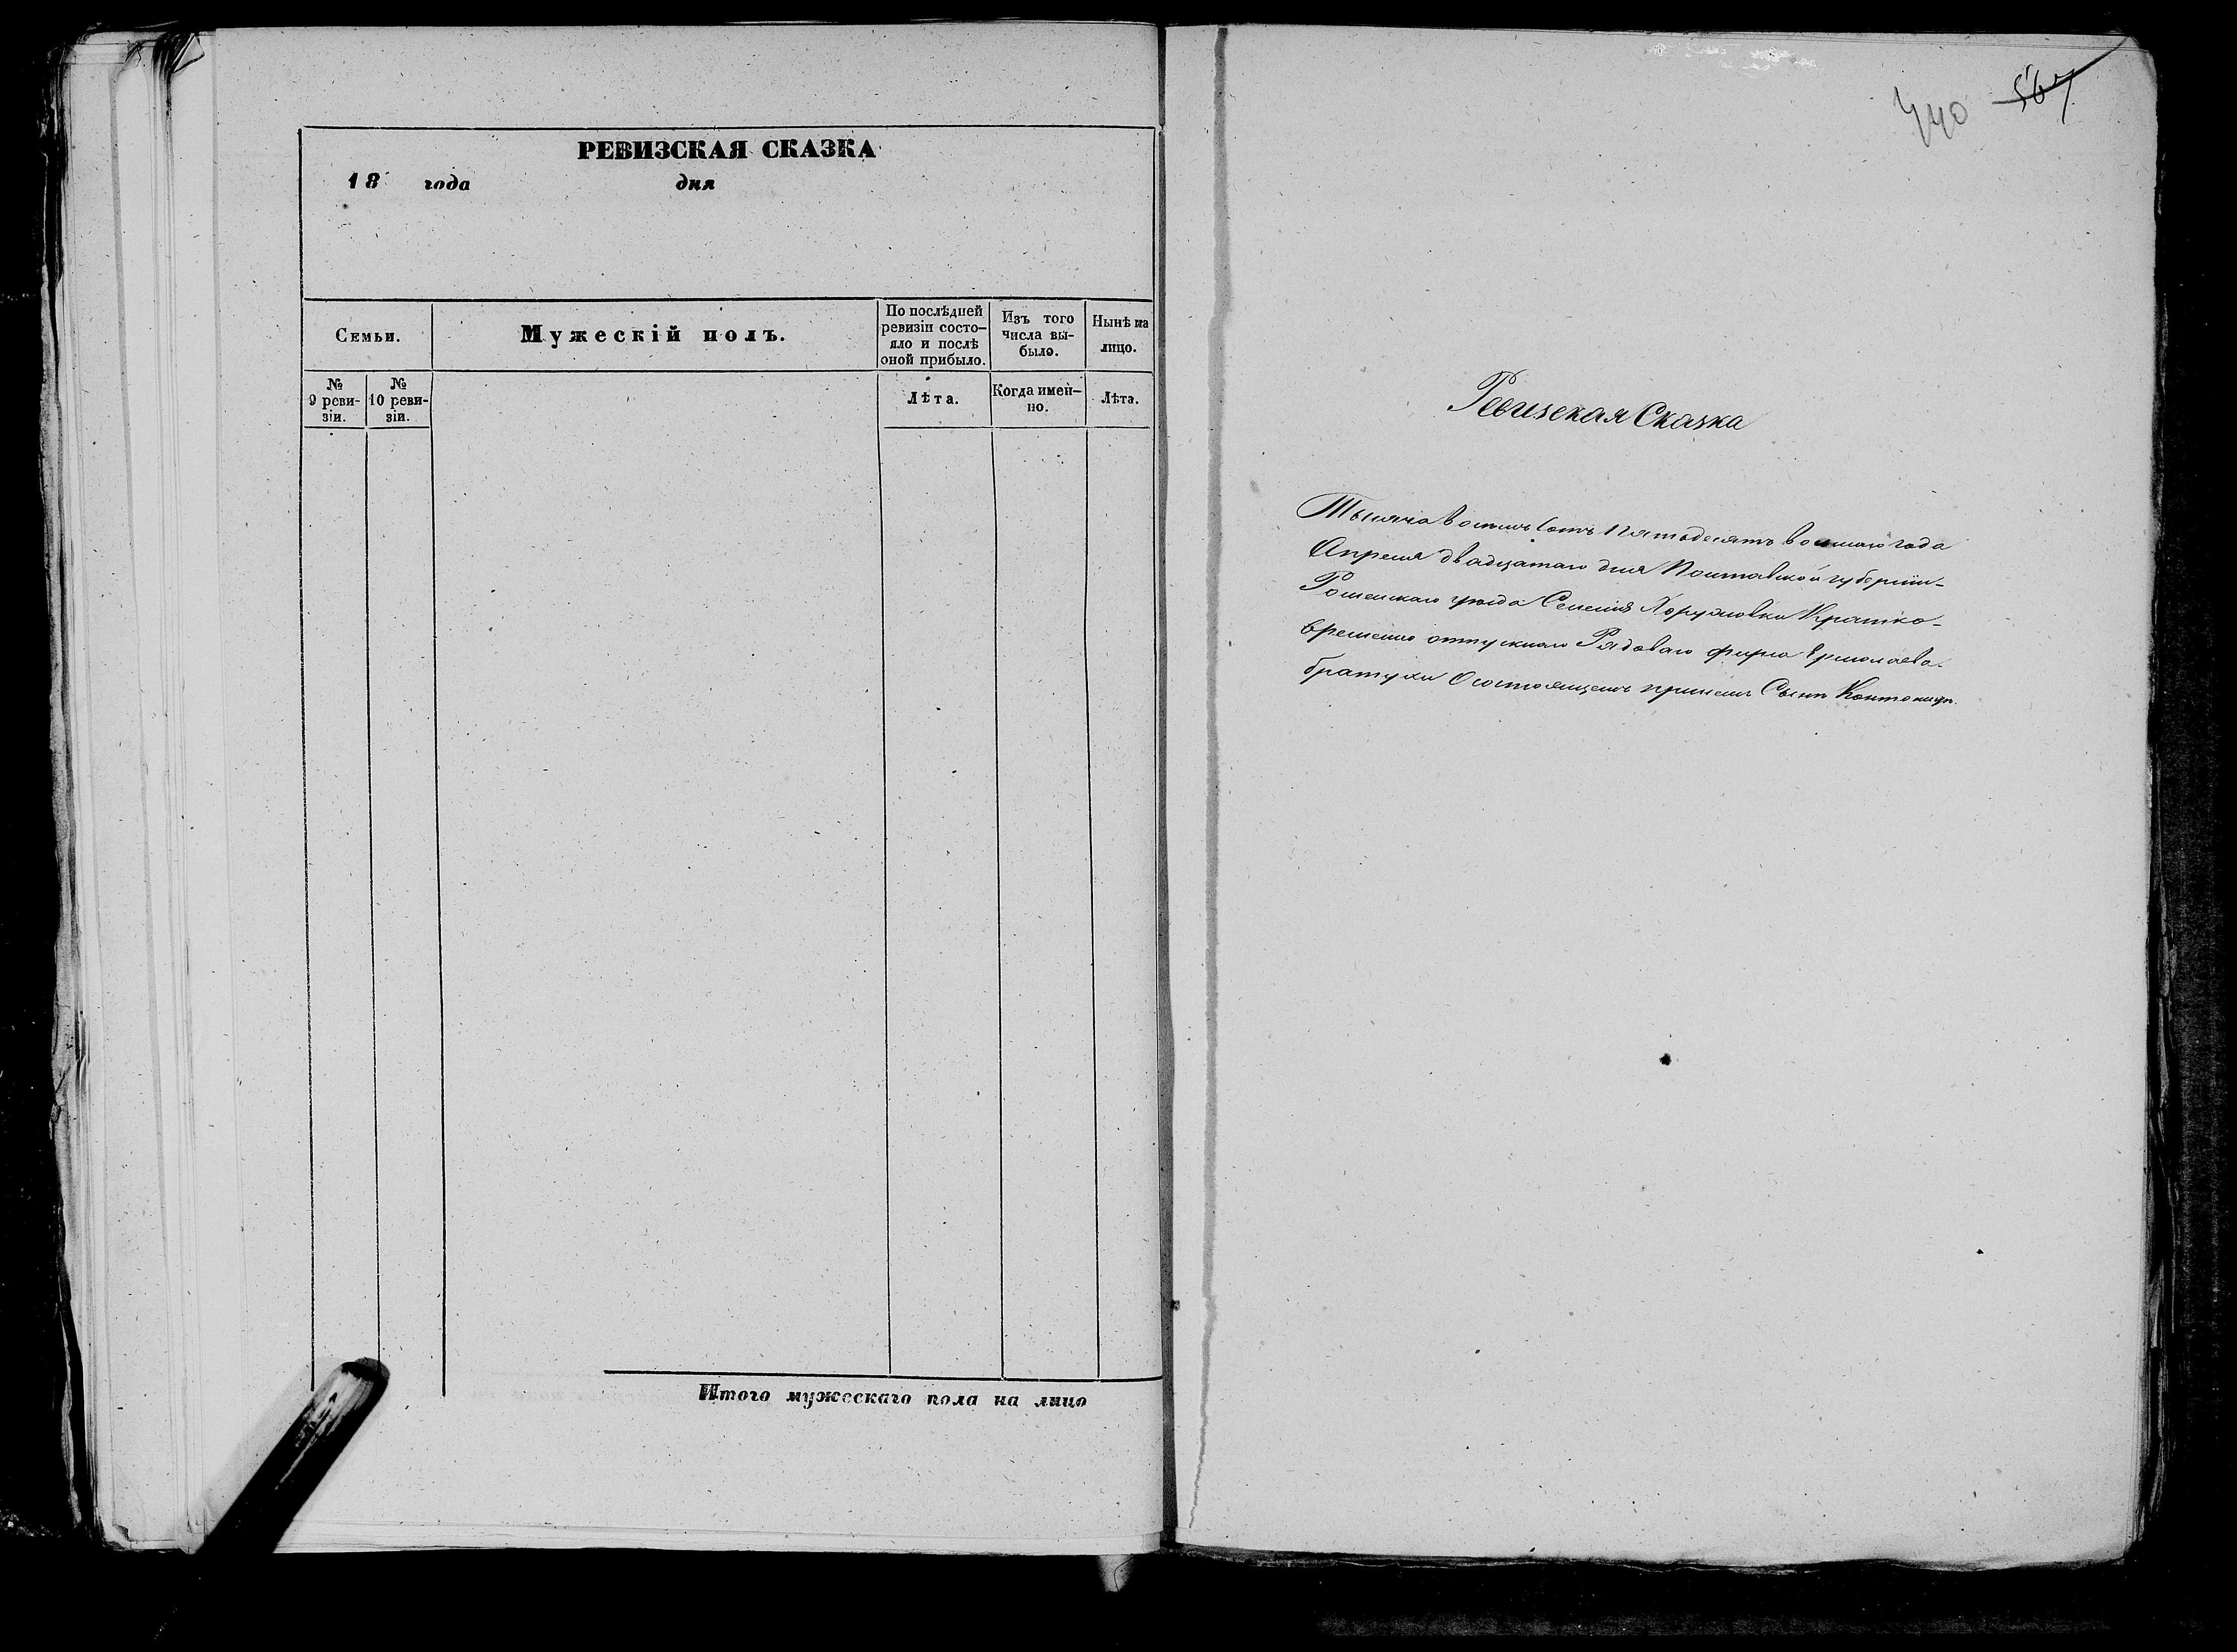 РЕВИЗСКАЯ СКАЗКА
18 года дня
Семьи.
Мужескій полъ.
По послѣдней ревизіи состо-
яло и послѣ
оной прибыло.
Изъ того
числа вы-
было.
Нынѣ на
лицо.
№
9 реви-
зіи.
№
10 реви-
зіи.
Лѣта.
Когда имен-
но.
Лѣта.
Итого мужескаго пола на лицо
440 567
Ревизская Сказка
Тысяча восемь сотъ Пятьдесятъ восмаго года
Апреля двадцатаго дня Полтавской губерніи-
Роменскаго уезда Селенія Хоружовки Кратко-
временно отпускнаго Рядоваго фирса Ермолаева-
братухи О состоящемъ принемъ Сыне Контонисте.